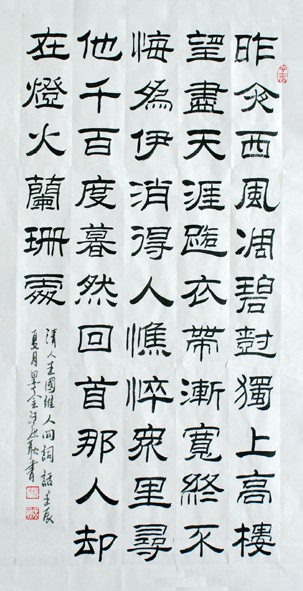 昨夜西風凋碧樹獨上高樓
望盡天涯路衣帶漸寬終不
悔為伊消得人憔悴衆里尋
他千百度暮然回首那人却
在燈火蘭珊處
清人王國維人間詞話壬辰
夏月書